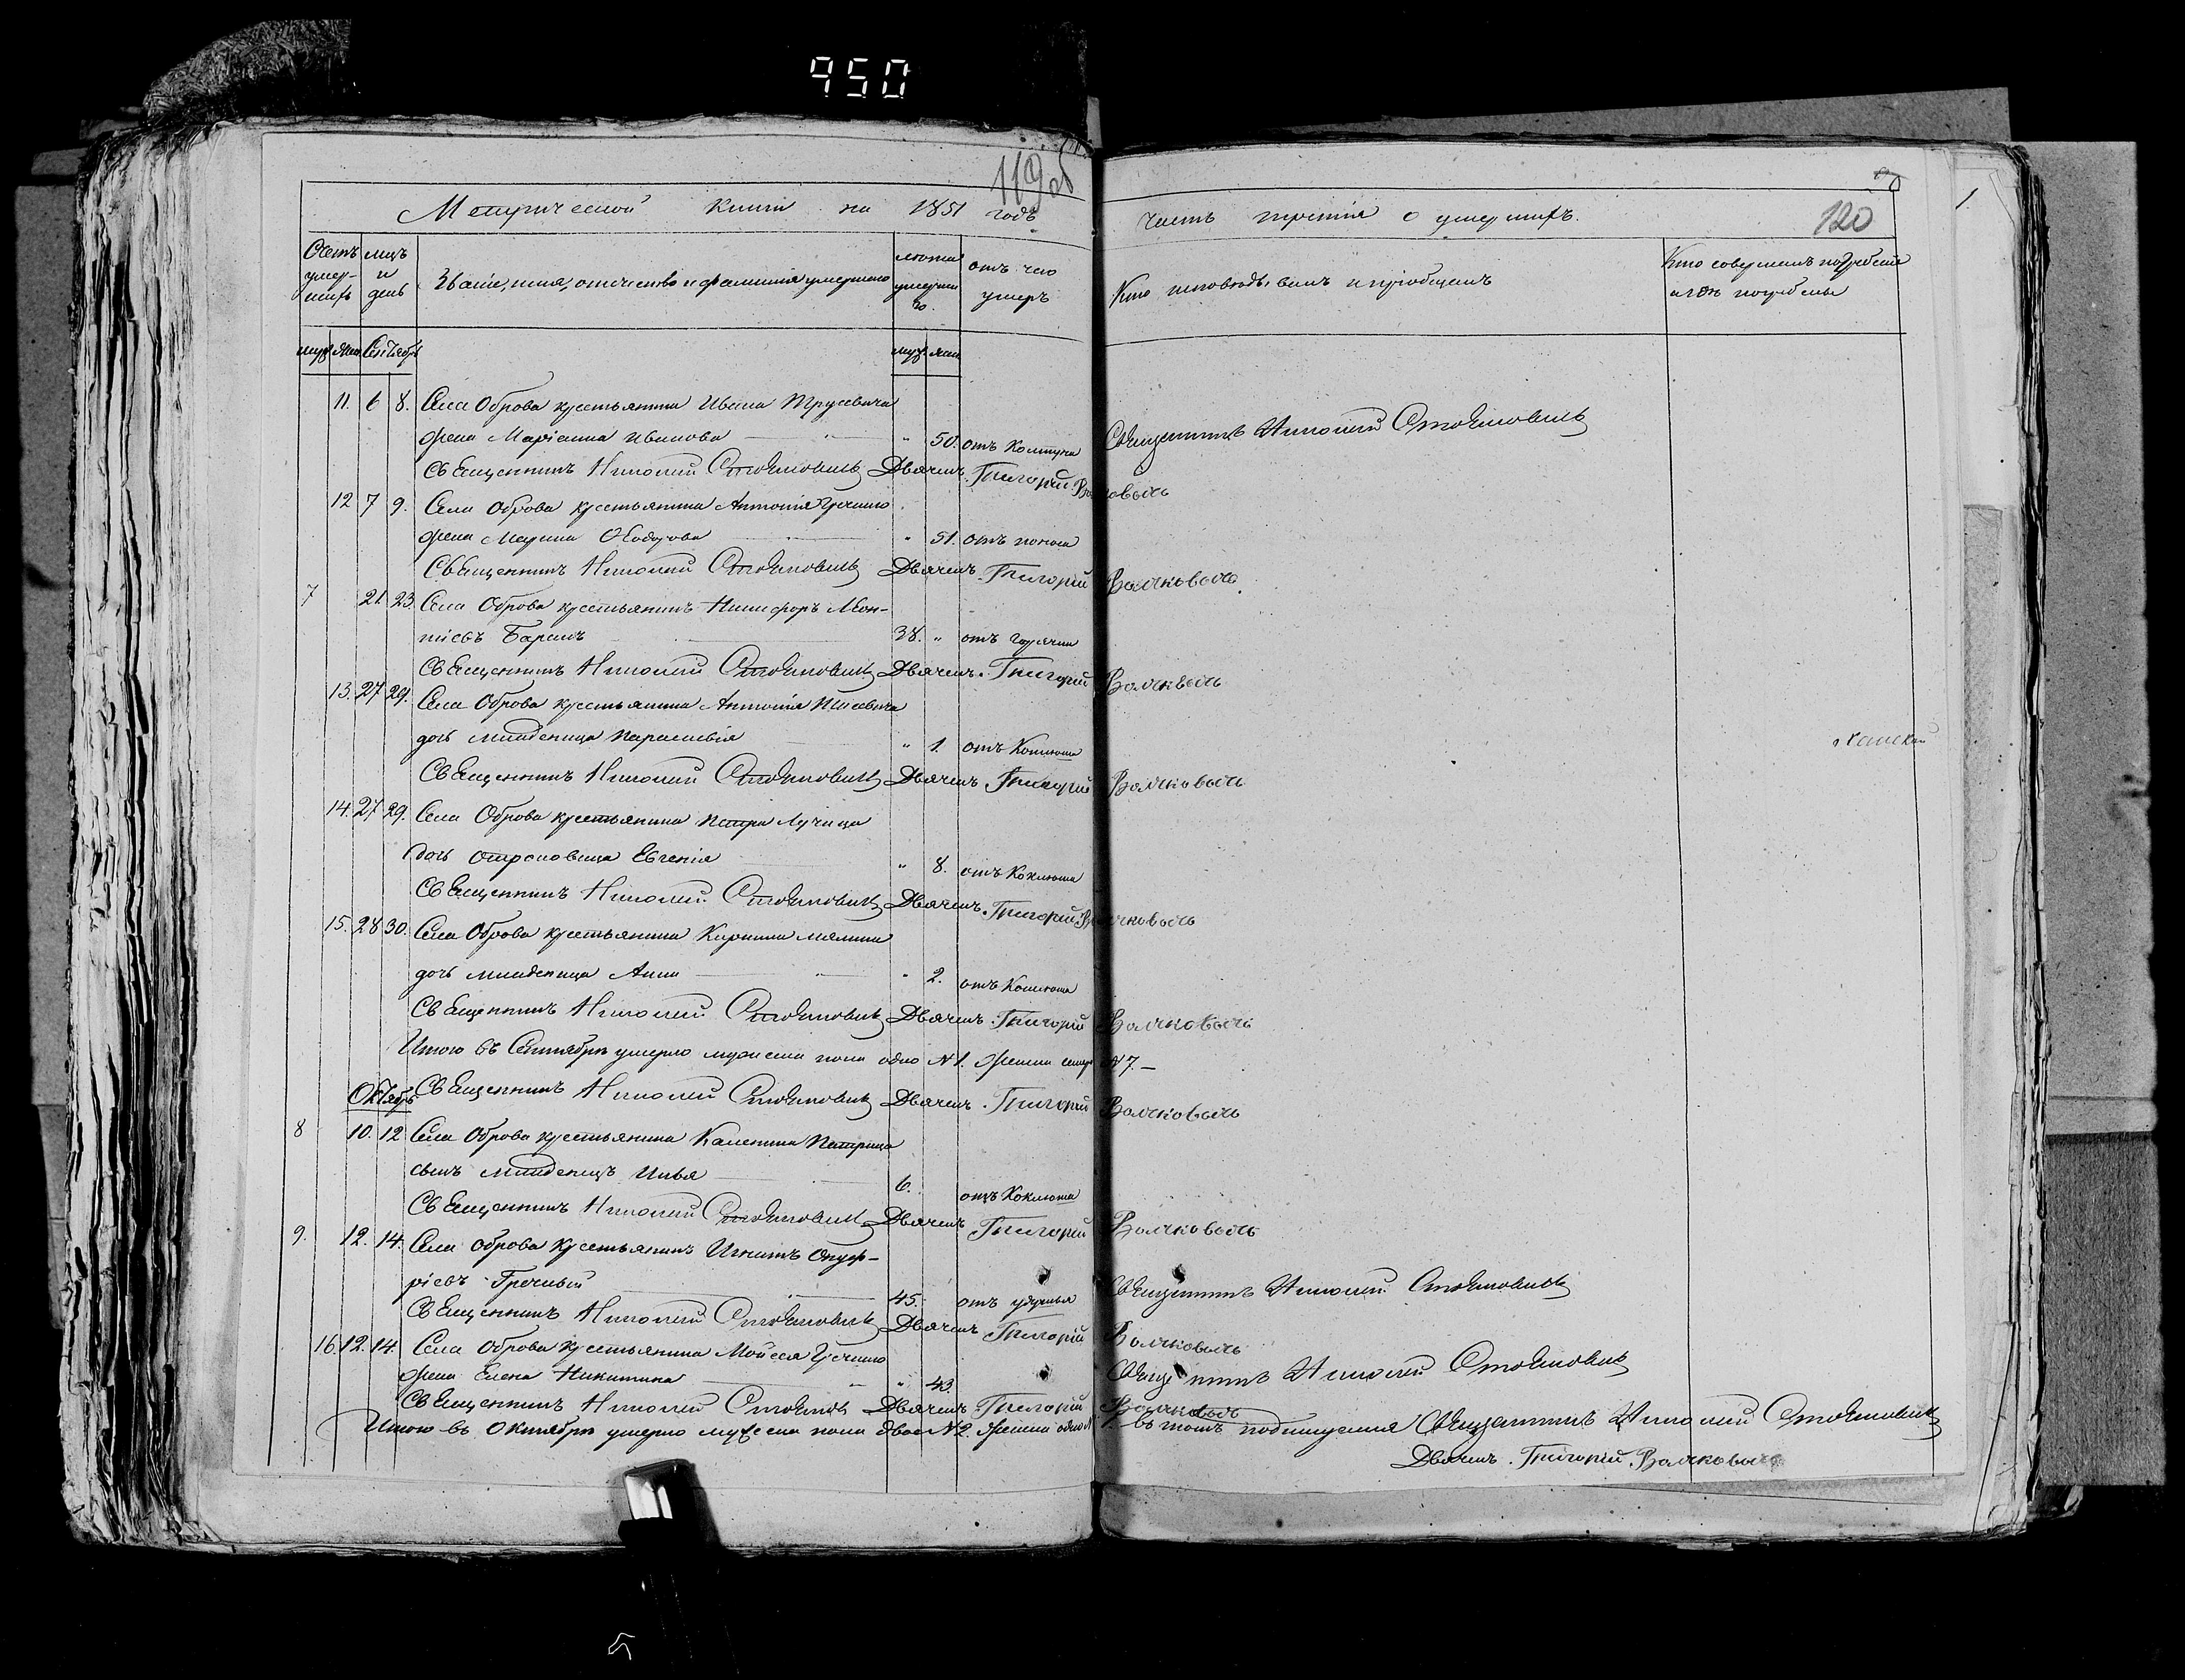 950
119об
Метрической книги на 1851 годъ
часть третія о умершихъ.
120
Счетъ умер- шихъ
мцъ и день
Званіе, имя, отчество и фамилія умершаго
лѣта умершаго
отъ чего умеръ
Кто исповѣдывалъ и пріобщалъ
Кто совершалъ погребеніе и гдѣ погребены
муж жен Сентябрь
муж жен
11. 6 8. Села Оброва крестьянина Ивана Трусевича
жена Маріанна Иванова " 50. отъ Колтуна Священникъ Николай Стояновичъ
Священникъ Николай Стояновичъ Дьячекъ Григорій Волчковычь
12 7 9. Села Оброва крестьянина Антонія Гречнаго
жена Марина Ѳеодорова " 51. отъ поноса
Священникъ Николай Стояновичъ Дьячекъ Григорій Волчковычь
7 21. 23. Села Оброва крестьянинъ Никифоръ Леон-
тіевъ 38. " отъ горячки
Священникъ Николай Стояновичъ Дьячекъ Григорій Волчковычь
13. 27 29. Села Оброва крестьянина Антонія
дочь младеница Параскевія " 1. отъ Коклюша
Священникъ Николай Стояновичъ Дьячекъ Григорій Волчковычь
14. 27 29. Села Оброва крестьянина Петра Лучица
дочь отроковица Евгенія " 8. отъ Коклюша
Священникъ Николай Стояновичъ Дьячекъ Григорій Волчковычь
15. 28 30. Села Оброва крестьянина Кирилла
дочь младеница Анна " 2. отъ Коклюша
Священникъ Николай Стояновичъ Дьячекъ Григорій Волчковычь
Итого въ Сентябрѣ умерло мужеска пола одно №1. женска №7.
Октябрь Священникъ Николай Стояновичъ Дьячекъ Григорій Волчковычь
8 10. 12 Села Оброва крестьянина Каленика Петрица
сынъ младенецъ Илья 6. отъ Коклюша
Священникъ Николай Стояновичъ Дьячекъ Григорій Волчковычь
9. 12. 14. Села Оброва крестьянинъ Игнатъ Онуф-
ріевъ Гречный 45. отъ удушья Священникъ Николай Стояновичъ
Священникъ Николай Стояновичъ Дьячекъ Григорій Волчковычь
16. 12. 14. Села Оброва крестьянина Мойсея Гречнаго
жена Елена Никитина " 43. Священникъ Николай Стояновичъ
Священникъ Николай Стояновичъ Дьячекъ Григорій Волчковычь
Итого въ Октябрѣ умерло мужеска пола двое №2. женска одно №1. въ томъ подпишуемся Священникъ Николай Стояновичъ
Дьячекъ Григорій Волчковычь